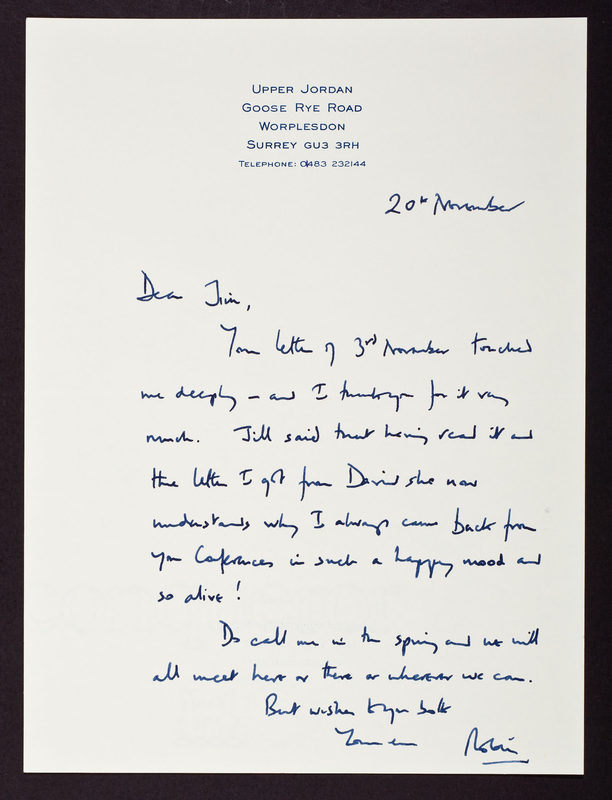 UPPER JORDAN
GOOSE RYE ROAD
WORPLESDON
SURREY GU3 3RH
TELEPHONE: 0483 232144
20th November
Dear Jim,
Your letter of 3rd November touched
me deeply – and I thank you for it very
much. Jill said that having read it and
the letter I got from David she now
understands why I always came back from
your Conferences in such a happy mood and
so alive!
Do call me in the spring and we will
all meet here or there or wherever we can.
Best wishes to you both
Yours ever Robin